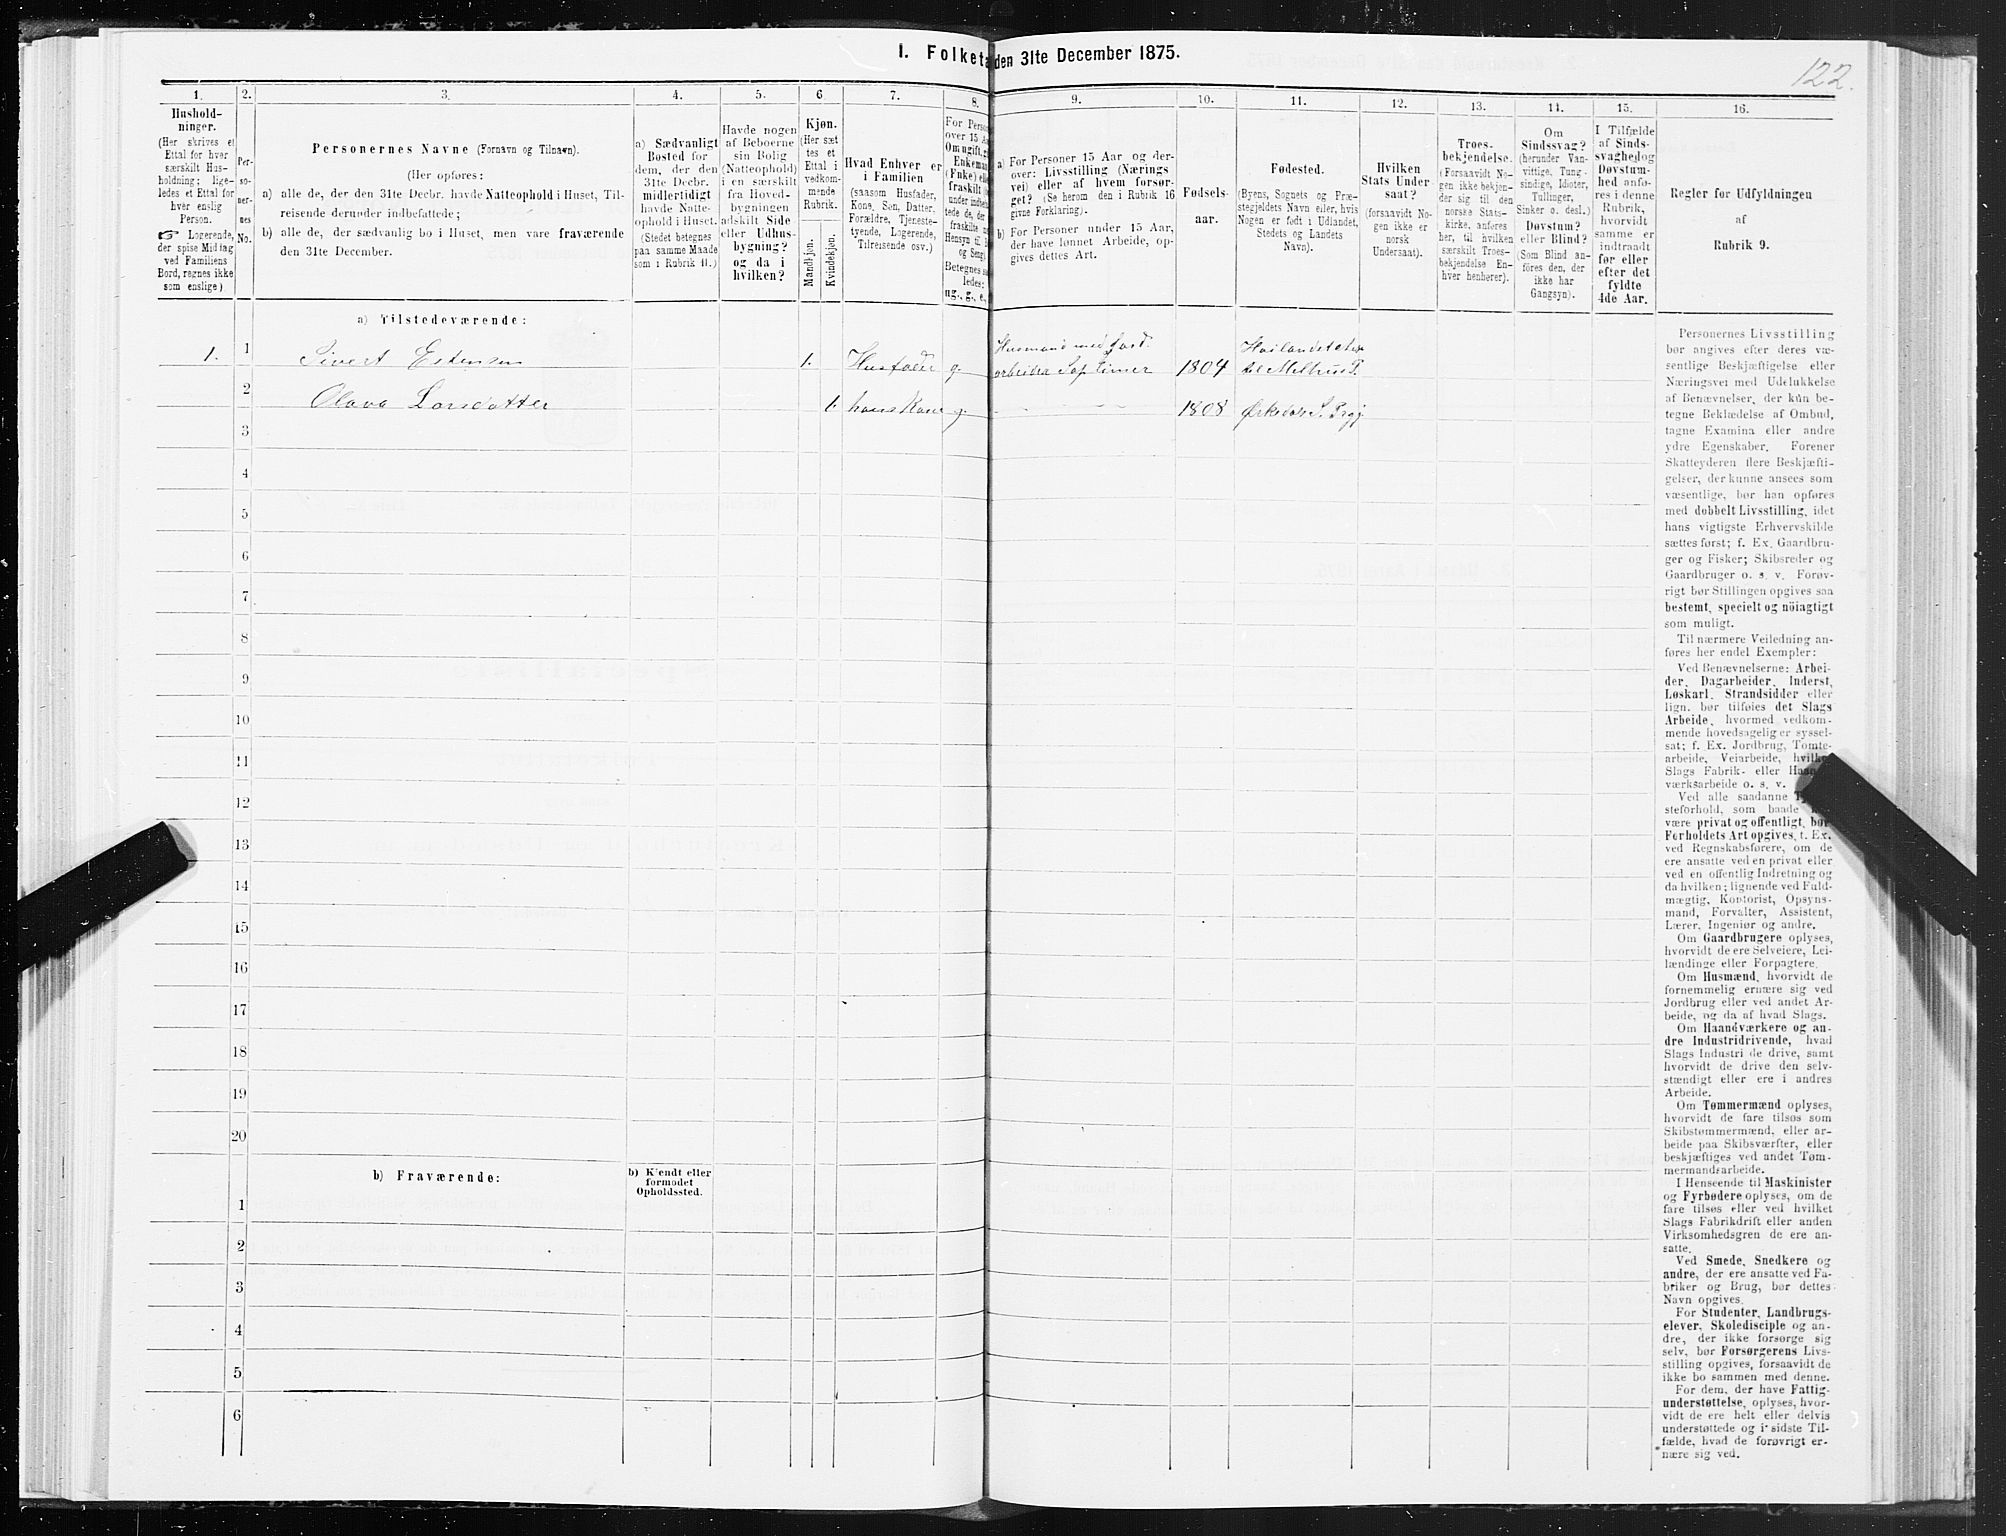 I. Folketæ den 31te December 1875.
122.
1.
Hushold-
ninger.
(Her skrives et
Ettal for hver
særskilt Hus-
holdning; lige-
ledes et Ettal for
hver enslig
Person.
☞ Logerende,
der spise Middag
ved Familiens
Bord, regnes ikke
som enslige)
2.
Per-
so-
ner-
nes
No.
3.
Personernes Navne (Fornavn og Tilnavn).
(Her opføres:
a) alle de, der den 31te Decbr. havde Natteophold i Huset, Til-
reisende derunder indbefattede;
b) alle de, der sædvanlig bo i Huset, men vare fraværende
den 31te December.
4.
a) Sædvanligt
Bosted for
dem, der den
31te Decbr.
midlertidigt
havde Natte-
ophold i Huset.
(Stedet betegnes
paa samme Maade
som i Rubrik 11.)
5.
Havde nogen
af Beboerne
sin Bolig
(Natteophold)
i en særskilt
fra Hoved-
bygningen
adskilt Side
eller Udhus-
bygning?
og da i
hvilken?
6
Kjøn.
(Her sæt
tes et
Ettal i
vedkom-
mende
Rubrik.
Mandkjøn.
Kvindekjøn.
7.
Hvad Enhver er
i Familien
(saasom Husfader,
Kone, Søn, Datter,
Forældre, Tjeneste-
tyende, Logerende,
Tilreisende osv.)
8.
For Perso
over 15 Aa
Om ugift, gi
Enkeman
(Enke) ell
fraskilt
under indbe
tede de, der
fraskilte
Hensyn til
og Seng.
Betegnes sa
ledes:
ug., g., e.,
9.
a) For Personer 15 Aar og der-
over: Livsstilling (Nærings
vei) eller af hvem forsør-
get? (Se herom den i Rubrik 16
givne Forklaring).
b) For Personer under 15 Aar,
der have lønnet Arbeide, op-
gives dettes Art.
10.
Fødsels-
aar.
11.
Fødested.
(Byens, Sognets og Præ-
stegjeldets Navn eller, hvis
Nogen er født i Udlandet,
Stedets og Landets
Navn).
12.
Hvilken
Stats Under
saat?
(forsaavidt No-
gen ikke er
norsk
Undersaat).
13.
Troes-
bekjendelse.
(Forsaavidt No-
gen ikke bekjen-
der sig til den
norske Stats-
kirke, anføres
her, til hvilken
særskilt Troes-
bekjendelse En-
hver henhører).
14.
Om
Sindssvag?
(herunder Van-
vittige, Tung-
sindige, Idioter,
Sinker o. desl.)
Døvstum?
eller Blind?
(Som Blind an-
føres den, der
ikke har
Gangsyn).
15.
I Tilfælde
af Sinds-
svaghed og
Døvstum-
hed anfø-
res i denne
Rubrik,
hvorvidt
samme er
indtraadt
før eller
efter det
fyldte
4de Aar.
16.
Regler for Udfyldningen
af
Rubrik 9.
a) Tilstedeværende:
1. 1 Sivert Estensen 1. Husfader g. Husmand med Jord 1804
2 Olava Larsdatter 1. hans Kone g. 1808
3
4
5
6
7
8
9
10
11
12
13
14
15
16
17
18
19
20
b) Fraværende:
b) Kjendt eller
formodet
Opholdssted.
1
2
3
4
5
6
Personernes Livsstilling
bør angives efter deres væ-
sentlige Beskjæftigelse eller
Næringsvei med Udelukkelse
af Benævnelser, der kun be-
tegne Beklædelse af Ombud,
tagne Examina eller andre
ydre Egenskaber. Forener
Skatteyderen flere Beskjæfti-
gelser, der kunne ansees som
væsentlige, bør han opføres
med dobbelt Livsstilling, idet
hans vigtigste Erhvervskilde
sættes først; f. Ex. Gaardbru-
ger og Fisker; Skibsreder og
Gaardbruger o. s. v. Forøv-
rigt bør Stillingen opgives saa
bestemt, specielt og nöiagtigt
som muligt.
Til nærmere Veiledning an-
føres her endel Exempler:
Ved Benævnelserne: Arbei-
der, Dagarbeider, Inderst,
Løskarl, Strandsidder eller
lign. bør tilføies det Slags
Arbeide, hvormed vedkom-
mende hovedsagelig er syssel-
sat; f. Ex. Jordbrug, Tomte-
arbeide, Veiarbeide, hvilket
Slags Fabrik- eller Haand-
værksarbeide o. s. v.
Ved alle saadanne
steforhold, som baade
være privat og offentligt, bør
Forholdets Art opgives, t. Ex.
ved Regnskabsførere, om de
ere ansatte ved en privat eller
ved en offentlig Indretning og
da hvilken; lignende ved Fuld-
mægtig, Kontorist, Opsyns-
mand, Forvalter, Assistent,
Lærer, Ingeniør og andre.
Om Gaardbrugere oplyses,
hvorvidt de ere Selveiere, Lei-
lændinge eller Forpagtere.
Om Husmænd, hvorvidt de
fornemmelig ernære sig ved
Jordbrug eller ved andet Ar-
beide, og da af hvad Slags.
Om Haandværkere og an-
dre Industridrivende, hvad
Slags Industri de drive, samt
hvorvidt de drive den selv-
stændigt eller ere i andres
Arbeide.
Om Tømmermænd oplyses,
hvorvidt de fare tilsøs som
Skibstømmermænd, eller ar-
beide paa Skibsværfter, eller
beskjæftiges ved andet Tøm-
mermandsarbeide.
I Henseende til Maskinister
og Fyrbødere oplyses, om de
fare tilsøs eller ved hvilket
Slags Fabrikdrift eller anden
Virksomhedsgren de ere an-
satte.
Ved Smede, Snedkere og
andre, der ere ansatte ved Fa-
briker og Brug, bør dettes
Navn opgives.
For Studenter, Landbrugs-
elever, Skoledisciple og an-
dre, der ikke forsørge sig
selv, bør Forsørgerens Livs-
stilling opgives, forsaavidt de
ikke bo sammen med denne.
For dem, der have Fattig-
understøttelse, oplyses, hvor-
vidt de ere helt eller delvis
understøttede og i sidste Til-
fælde, hvad de forøvrigt er-
nære sig ved.